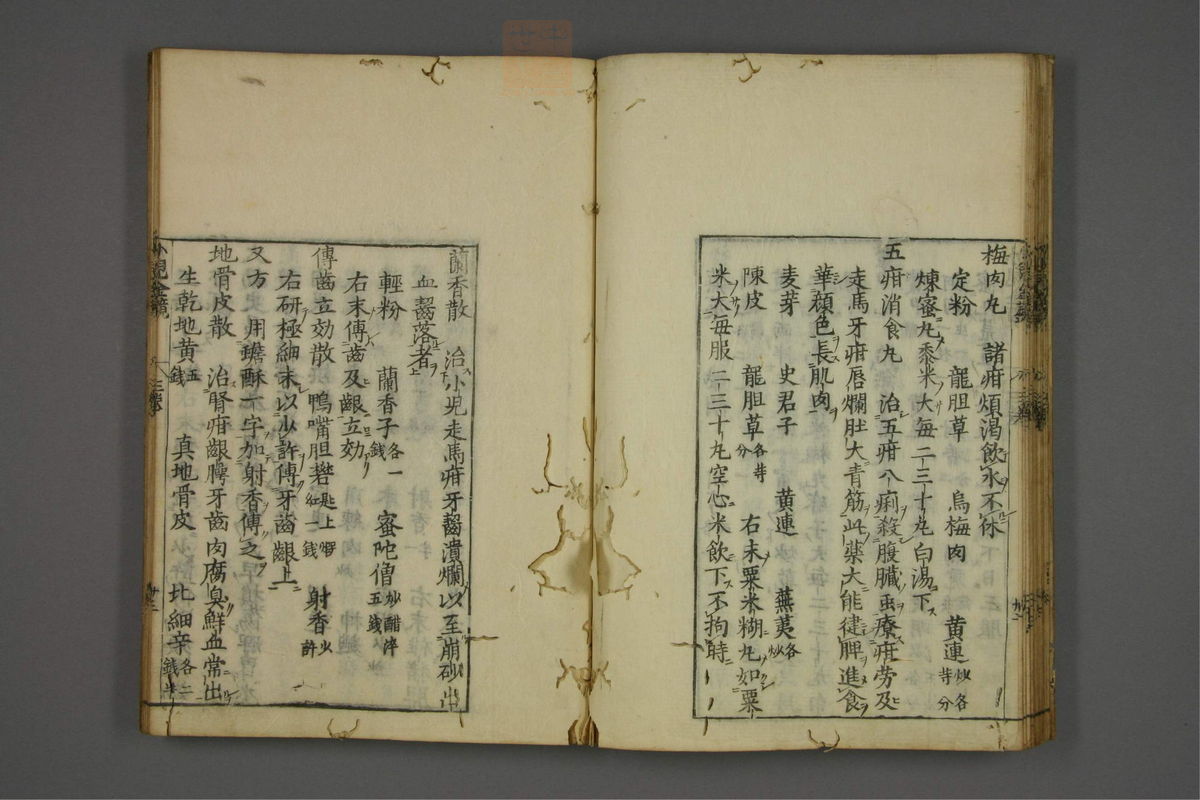 梅肉丸 諸疳煩渇飲水不休
定粉 龍胆草 烏梅肉 黄連炒各等分
煉蜜丸黍米大毎二三十丸白湯下
五疳消食丸 治五疳八痢殺腹臓虫療疳労及
走馬牙疳唇爛肚大青筋此薬大能健脾進食
華顔色長肌肉
麦芽 史君子 黄連 蕪荑各炒
陳皮 龍胆草各等分 右末粟米糊丸如粟
米大毎服二三十丸空心米飲下不拘時
蘭香散 治小児走馬疳牙齒潰爛以至崩砂出
血齒落者
輕粉 蘭香子各一錢 蜜陀僧炒醋淬五錢
右末傅齒及齦立効
傅齒立効散 鴨嘴胆礬匙上煆紅一錢 射香少許
右研極細末以少許傅牙齒齦上
又方 用蟾酥一字加射香傅之
地骨皮散 治腎疳齦腭牙齒肉腐臭鮮血常出
生乾地黄五錢 真地骨皮 北細辛各二錢半